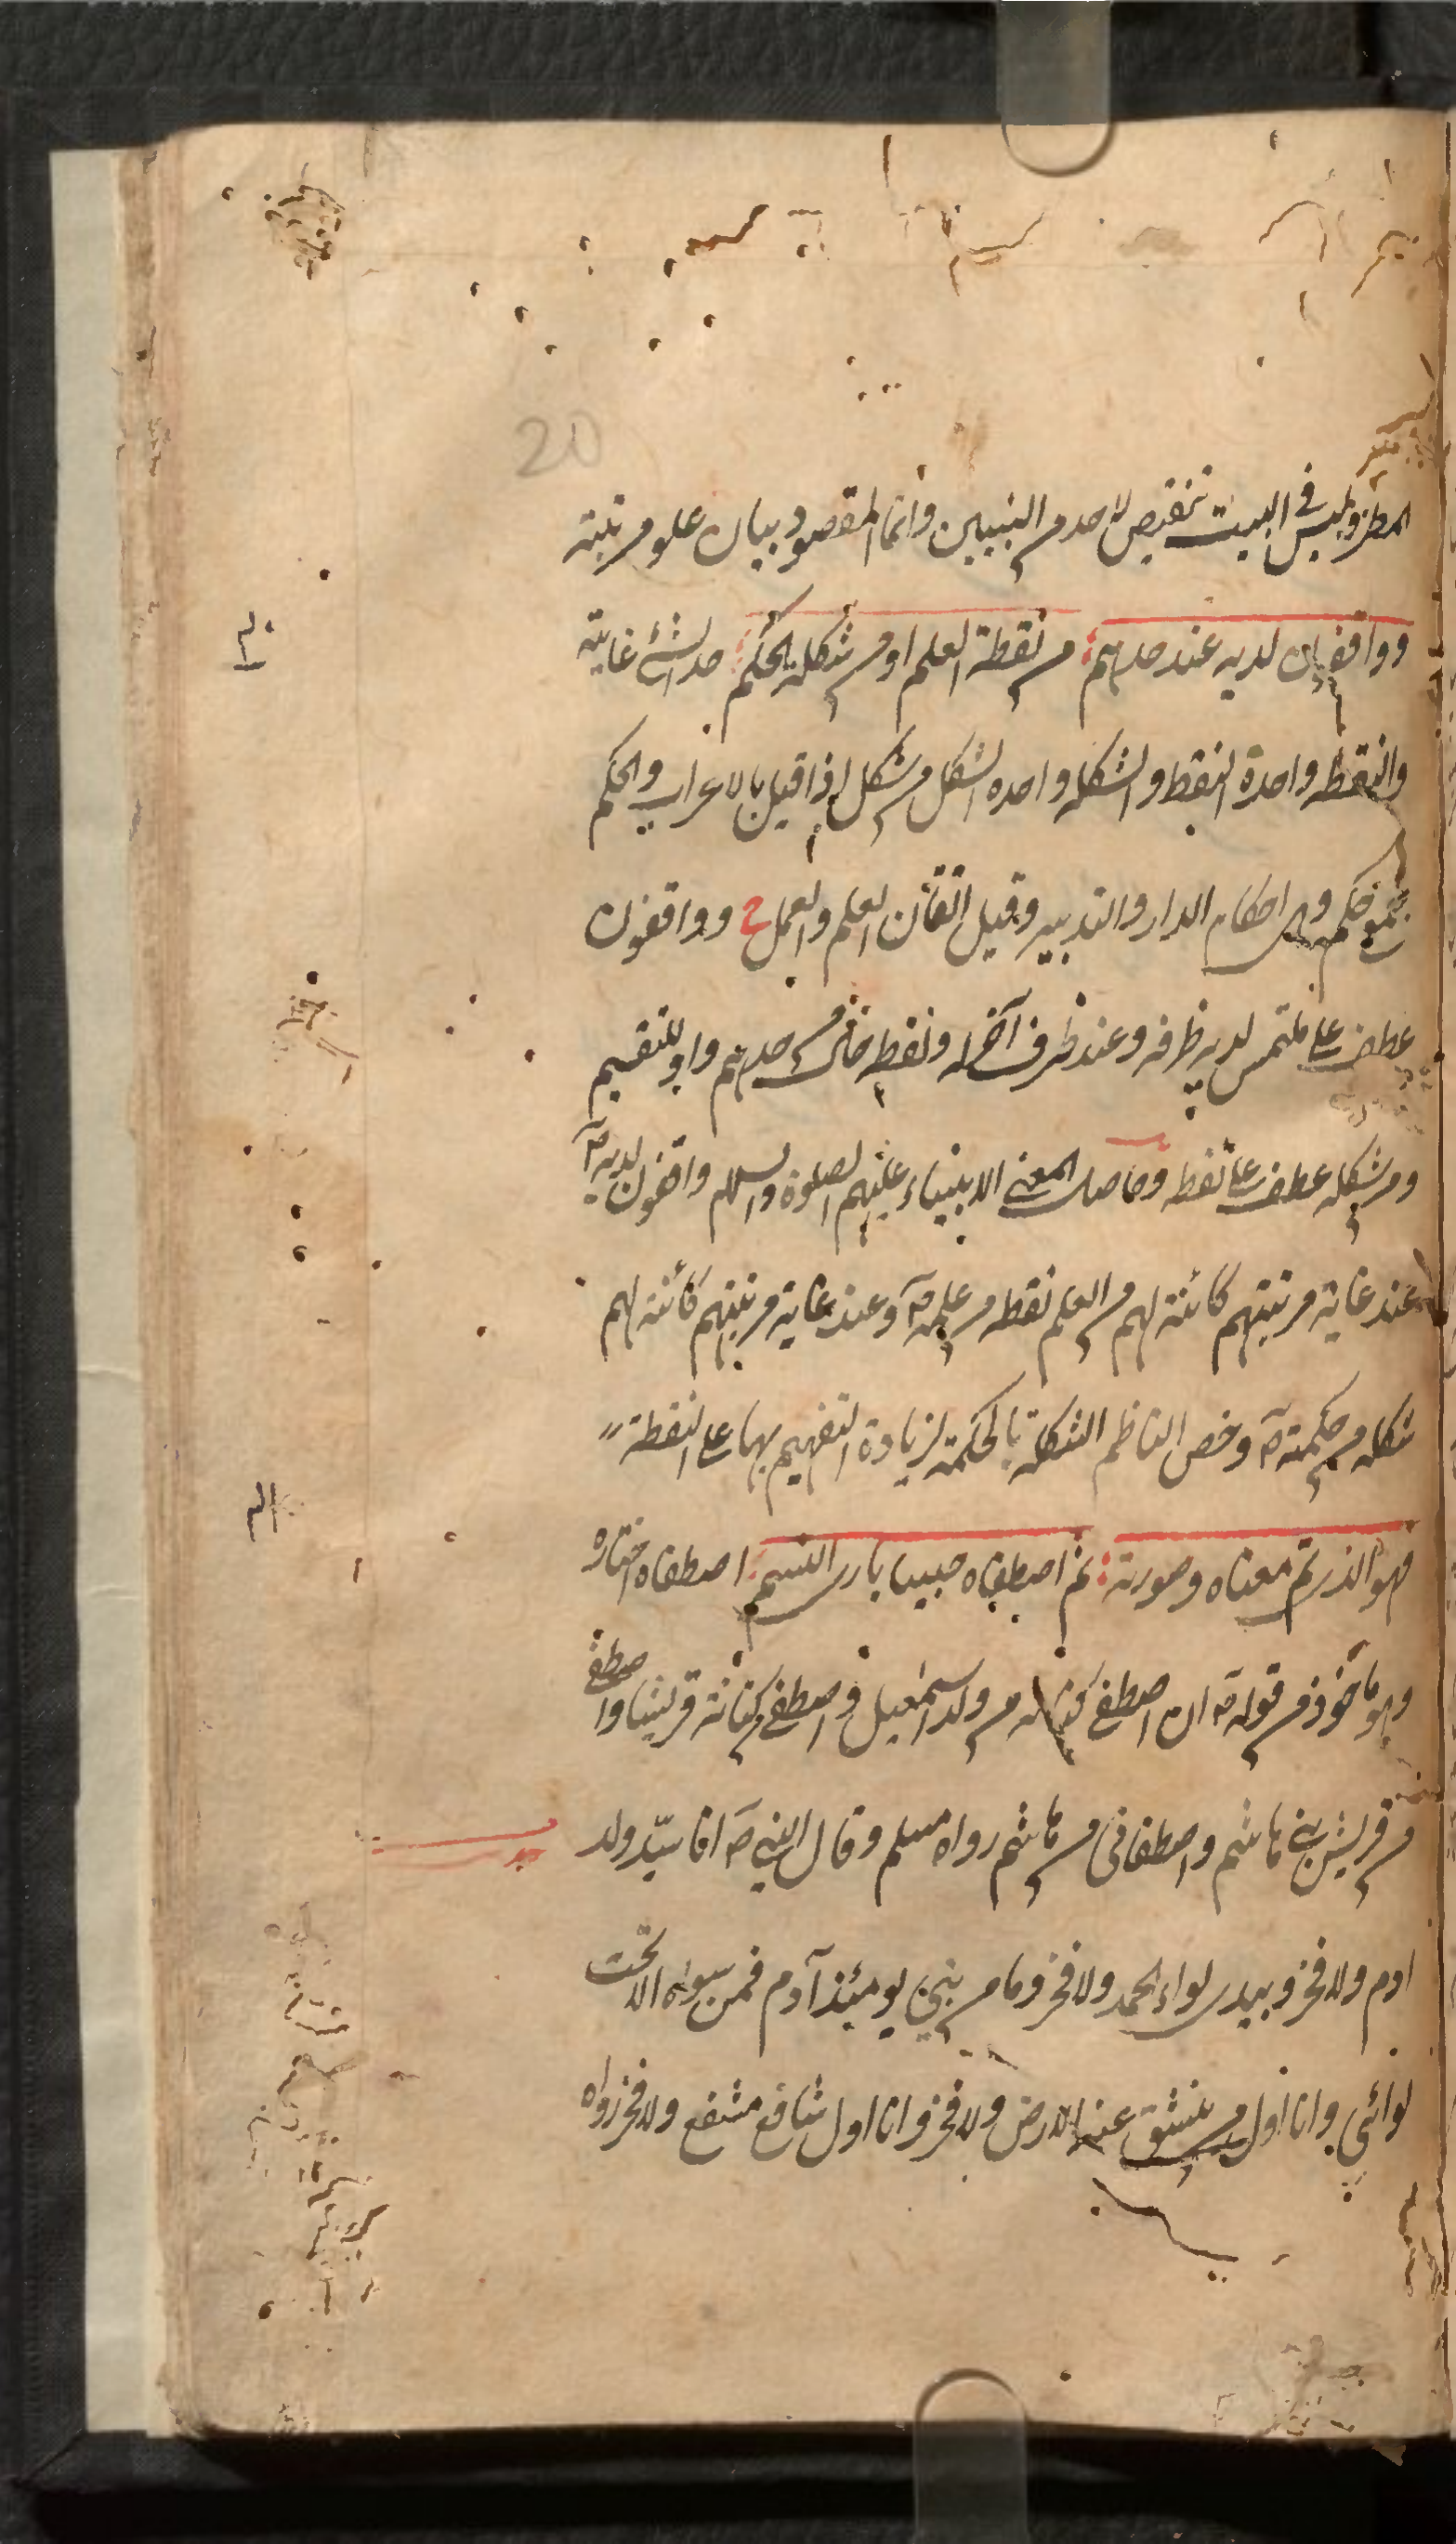 20
المطر وليس في البيت تنقيص لاحد من النبيين وانما المقصود بيان علو مرتبته
وواقفون لديه عند حدهم من نقطة العلم او من شكلة الحكم حد الشئ غايته
والنقطه واحدة النقط والشكله واحده الشكل من شكل اذا قيل بالاعراب والحكم
جمع حكم وهي احكام الدار والتدبير وقيل اتقان العلم والعمل ح وواقفون
عطف على ملتمس لديه ظرفه وعند ظرف آخر له ونقطه حدهم واو للتقسيم
ومن شكله عطف على نقطه وحاصل المعنى الانبياء عليهم الصلوة والسلام واقفون لديه صم
عند غاية مرتبتهم كائنة لهم من العلم نقطه من علمه صم وعند غاية مرتبتهم كائنة لهم
شكله من حكمته صم وخص الناظم الشكلة بالحكمة لزيادة التفهيم بها على النقطة
فهو الذى تم معناه وصورته ثم اصطفاه حبيبا بارى النسم اصطفاه اختاره
وهو ماخوذ من قوله صم ان اصطفى كنانه من ولد اسمعيل واصطفى من كنانة قريشا واصطفى
من قريش بنى هاشم واصطفانى من هاشم رواه مسلم وقال النبى صم انا سيد ولد
ادم ولا فخر وبيدى لواء الحمد ولا فخر وما من بنى يومئذ آدم فمن سواه الا تحت
لوائي وانا اول من ينشق عنه الارض ولا فخر وانا اول شافع مشفع ولا فخر رواه